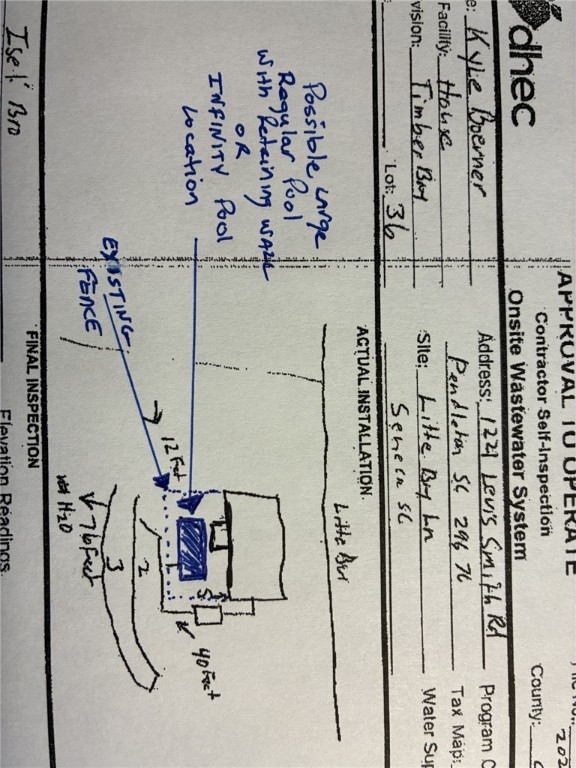 dhec
APPROVAL TO OPERATE
Contractor Self-Inspection
Onsite Wastewater System
County:
202
e: Kyle Boerner
Address: 1221 Levis Smith Rd
Program C
Facility: House
Pendleton SC 29670
Tax Map:
vision: Timber Bay
Site: Little Bay Ln
Water Sup
Lot: 36
Seneca SC
ACTUAL INSTALLATION
Possible Large
Regular Pool
with Retaining wall
OR
INFINITY Pool
Location
EXISTING
FENCE
12 Feet
40 Feet
2
3
76 Feet
H2O
FINAL INSPECTION
Elevation Readings